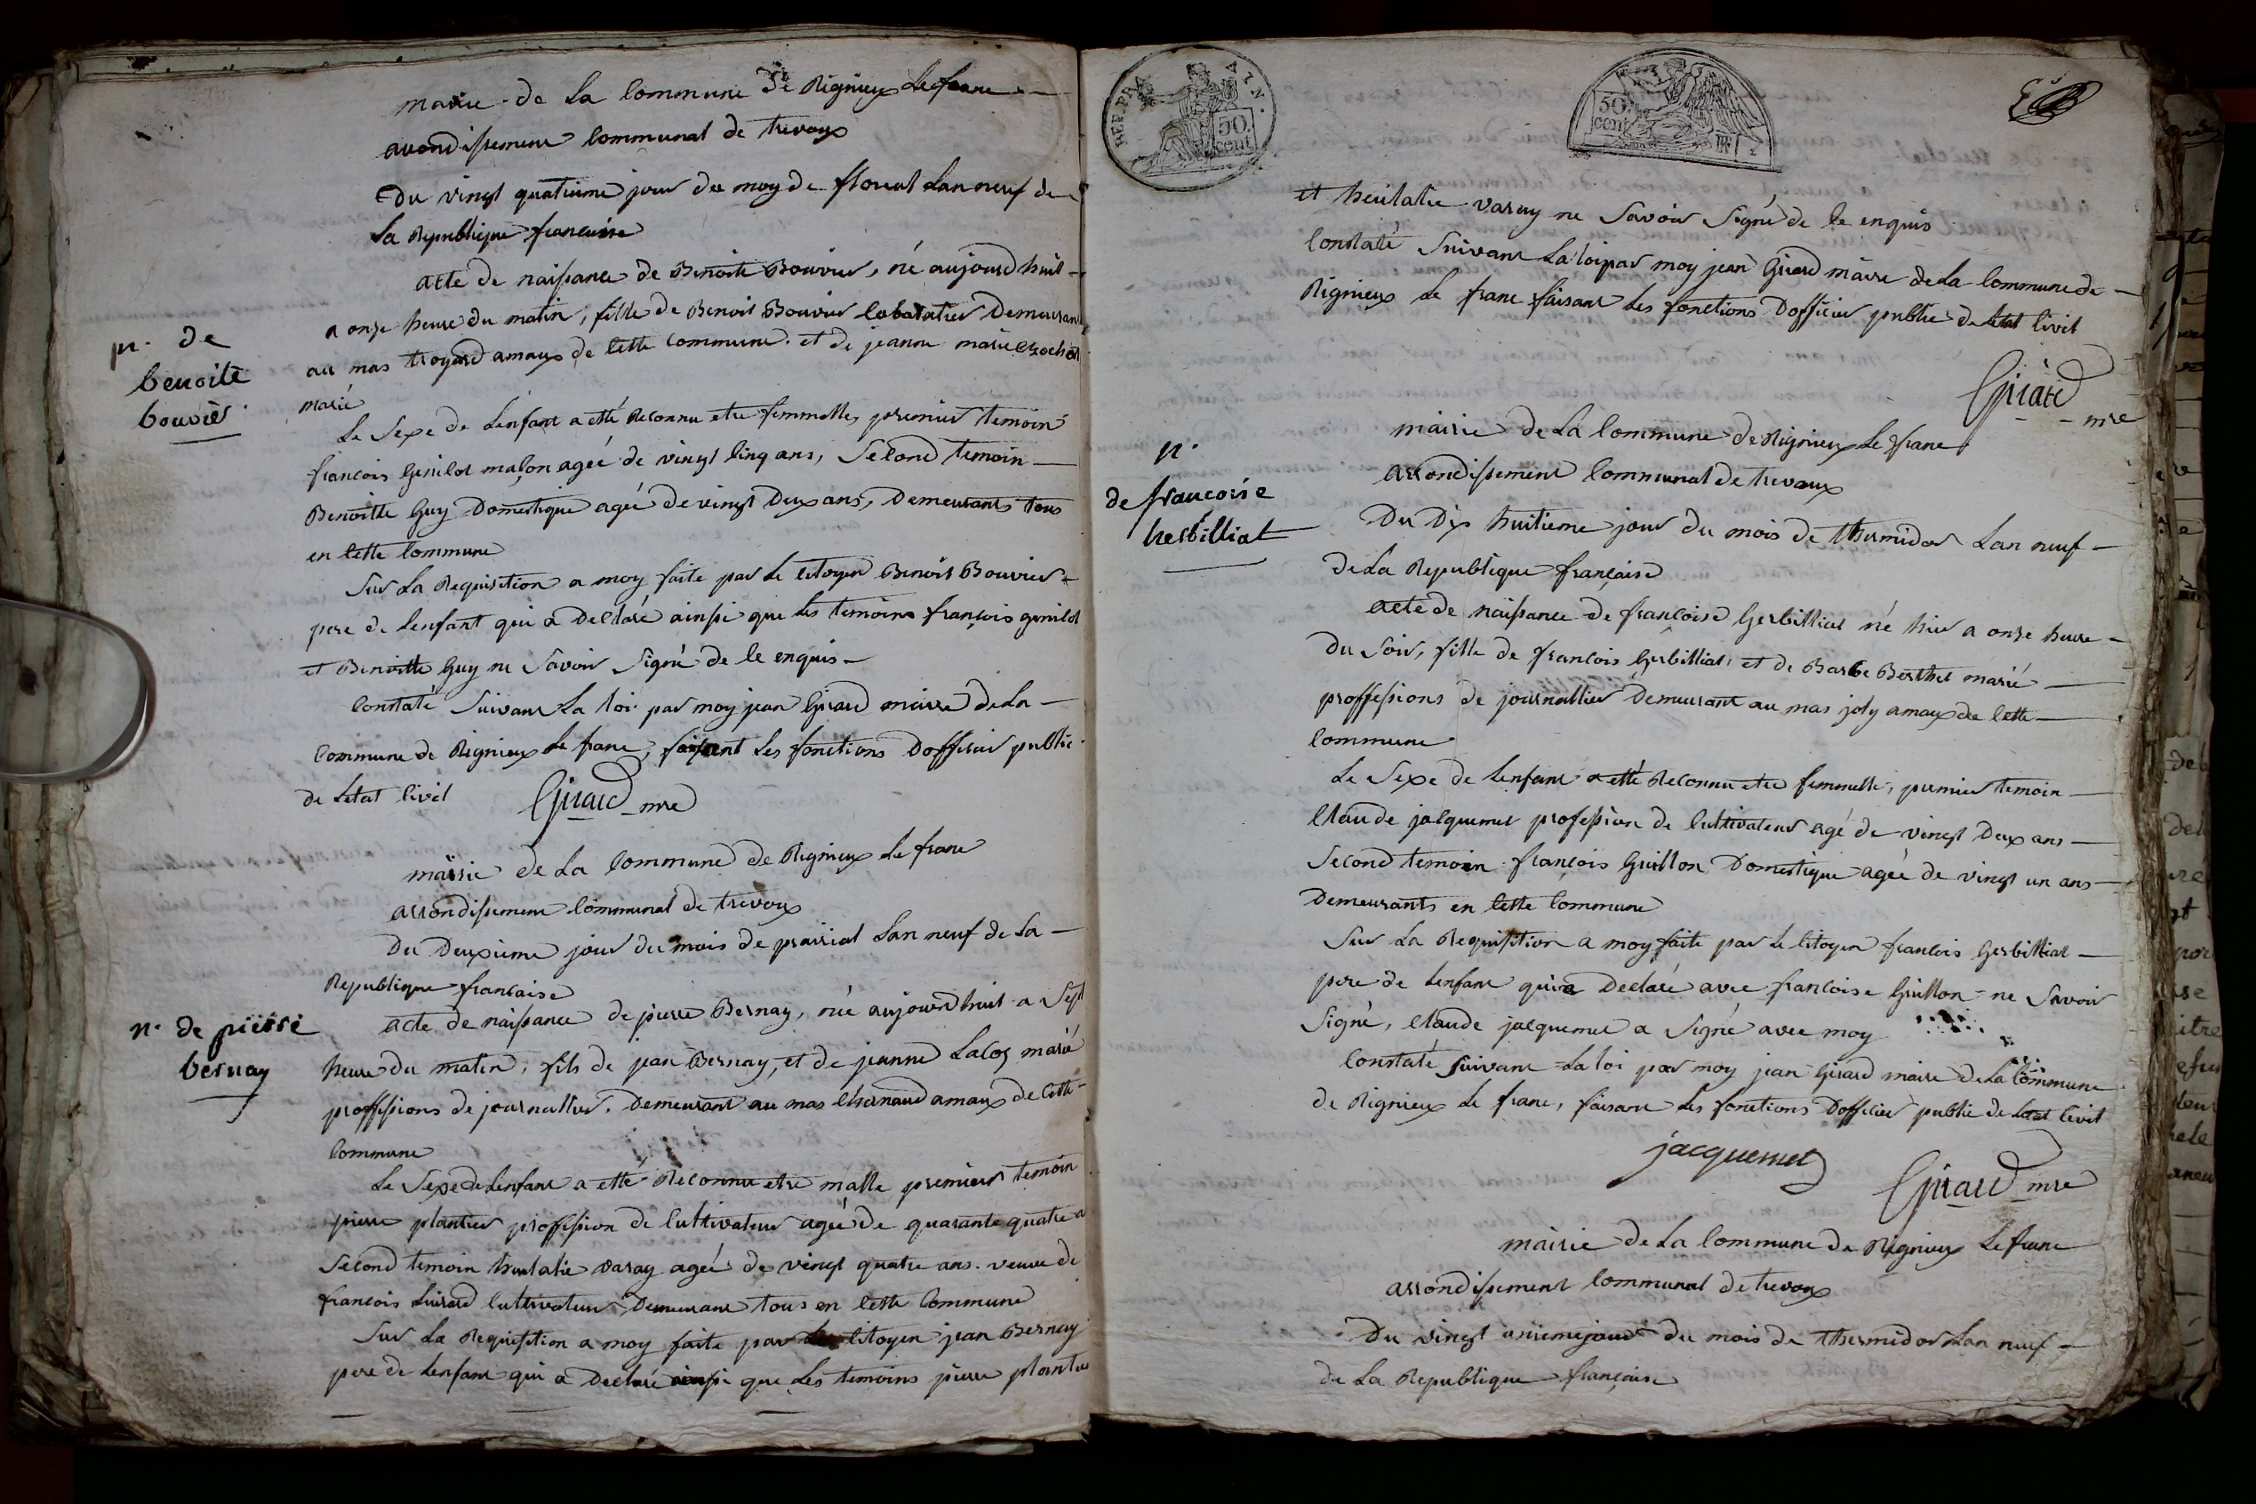 mairie de la Commune de Rignieux le franc
arrondissement Communal de trevoux
Du vingt quatrieme jour du moy de floreal Lan neuf de
la Republique francaise
acte de naissance de Benoite Bouvier, né aujourdhuit
n. de
benoite
bouvier
a onze heure du matin, fille de Benoit Bouvier Cabaratier Demeurant
au mas troyard amaux de Cette Commune. et de jeanne marie
marié
Le Sexe de Lenfant a etté Reconnu etre femmelle, premier temoin
francois Genilot maçon ageé de vingt Cinq ans, Second temoin
Benoitte Guy Domestique ageé de vingt Deux ans, Demeurants tous
en Cette Commune
Sur La Requisition a moy faite par Le Citoyen Benoit Bouvier
pere de Lenfant qui a Déclaré ainsi que les temoins françois genilot
et Benoitte Guy ne Savoir Signé de Ce enquis
Constaté Suivant La loi par moy jean Girard maire de La
Commune de Rignieux le franc, faisant Les fonctions Dofficier public
de Letat Civil
Girard mre
mairie de La Commune de Rignieux Le franc
arrondissement Communal de trevoux
Du Deuxieme jour du mois de prairial Lan neuf de La
Republique francaise
n. de pierre
bernay
acte de naissance de pierre Bernay, née aujourdhuit a Sept
heure du matin, fils de jean Bernay, et de jeanne Lacoz marié
proffesions de journallier. Demeurant au mas Chernaud amaux de Cette
Commune
Le Sexe de Lenfant a etté Reconnu etre malle premier temoin
pierre plantier proffesion de Cultivateur ageé de quarante quatre a
Second temoin heulalie varay ageé de vingt quatre ans. veuve de
francois Cultivateur, Demeurant tous en Cette Commune
Sur La Requisition a moy faite par Le Citoyen jean Bernay
pere de Lenfant qui a Declaré ainsi que Les temoins pierre plantier
REP. FRA
50
cent
50
cent
et heulalie varay ne Savoir Signé de Ce enquis
Constaté Suivant La loi par moy jean Girard maire de La Commune de
Rignieux le franc faisant Les fonctions Dofficier public de Letat Civil
Girard mre
mairie de La Commune de Rignieux Le franc
arrondissement Communal de trevoux
n.
de francoise
herbilliat
Du Dix huitieme jour du mois de thermidor Lan neuf
de La Republique française
acte de naissance de françoise Gerbilliat né hier a onze heure
Du Soir, fille de françois Gerbilliat, et de Barbe Berthet marié
proffessions de journallier Demeurant au mas joly amaux de Cette
Commune
Le Sexe de Lenfant a etté Reconnu etre femmelle, premier temoin
Claude jacquemet profession de Cultivateur agé de vingt Deux ans
Second temoin françois Guillon Domestique ageé de vingt un ans
Demeurants en Cette Commune
Sur La Requisition a moy faite par Le Citoyen francois Gerbilliat
pere de Lenfant qui a Declaré avec francoise Guillon ne Savoir
Signé, Claude jacquemet a Signé avec moy
Constaté suivant La loi par moy jean Girard maire de La Commune
de Rignieux Le franc, faisant Les fonctions Dofficier public de Letat Civil
jacquemet
Girard mre
mairie de La Commune de Rignieux Le franc
arrondissement Communal de trevoux
Du vingt unieme jour du mois de thermidor Lan neuf
de La Republique française